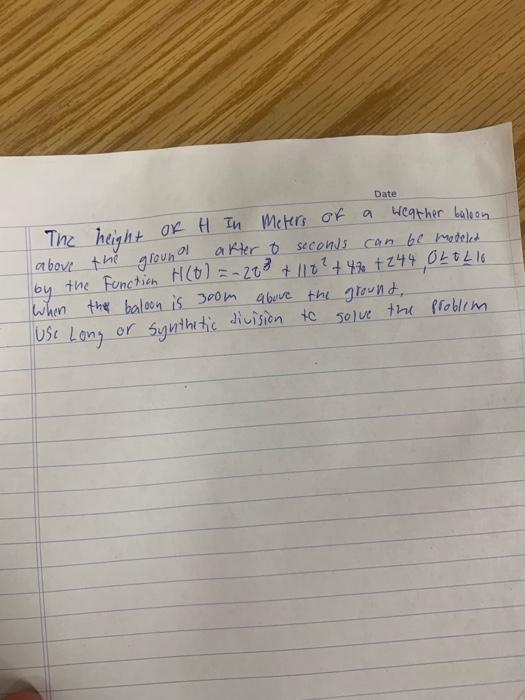 Date
The height of H In Meters of a weather baloon
above the ground after t seconds can be modeled
by the Function H(t) = -2t³ + 11t² + 47t + 244, 0≤t≤10
When the baloon is 300m above the ground,
Use Long or Synthetic division to solve the problem